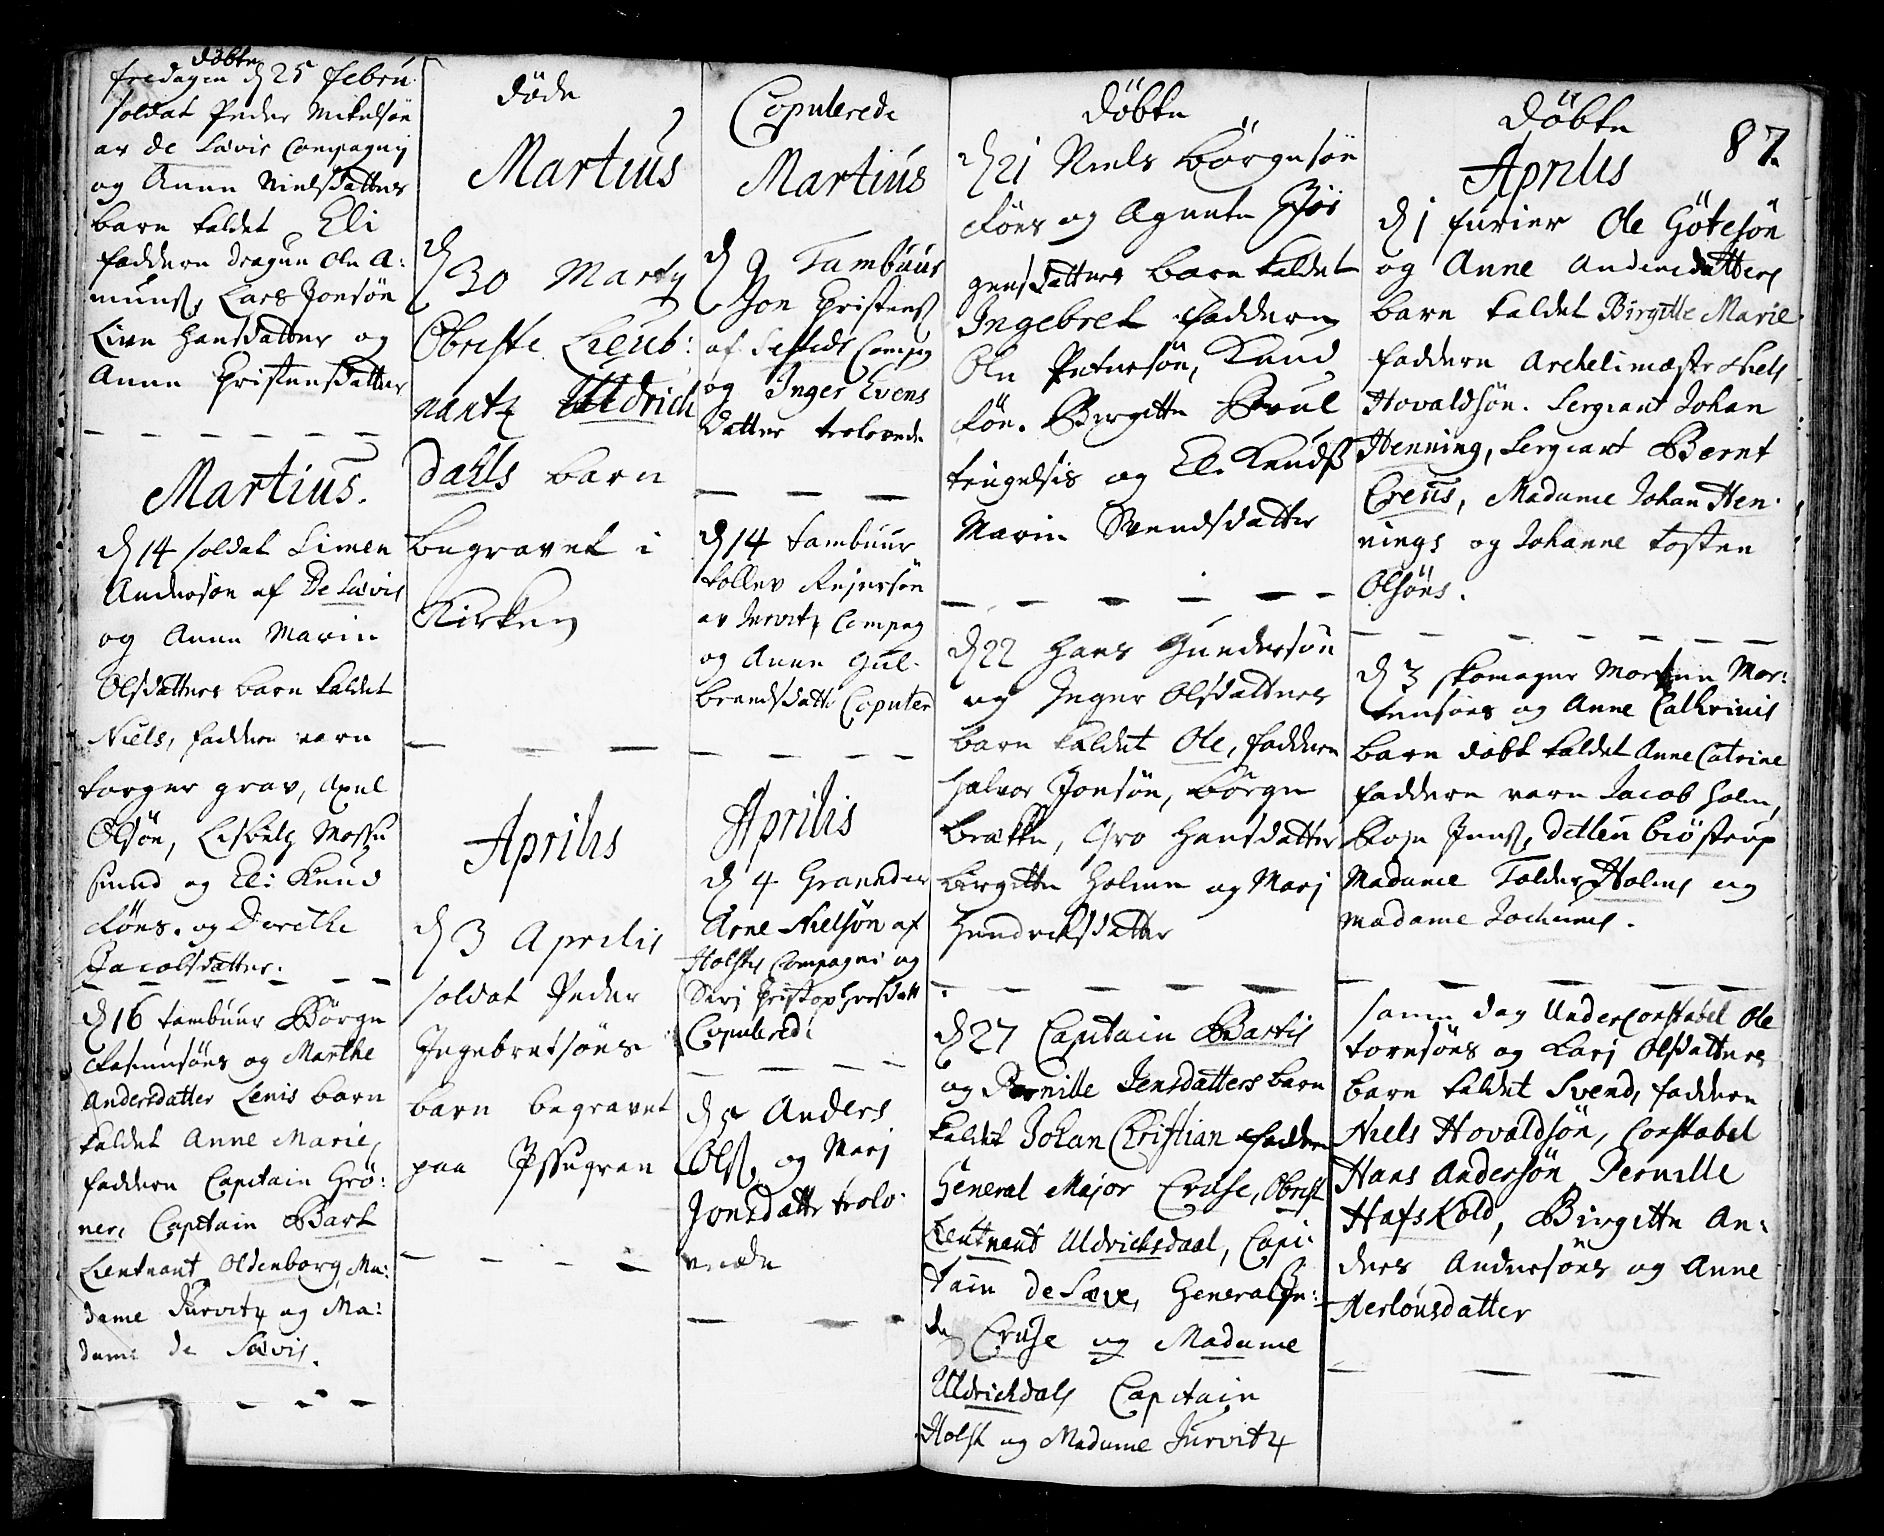 döbte
fredagen d 25 febru
soldat Peder Mikelsön
av de Sævis Compagnj
og Anne Nielsdatters
barn kaldet Eli
faddere dragun Ole A:
muns, Lars Jonsön
Live Hansdatter og
Anne Christensdatter
Martius.
d 14 soldat Simen
Andersøn af De Sævis
og Anne Marie
Olsdatters barn kaldet
Niels, faddere vare
torger grav, Axel
Olsön, Lisbeth Mosse
sund og Eli Knud
söns. og Dorethe
Jacobsdatter.
d 16 tambuur Börge
Rasmusöns og Marthe
Andersdatter Lenis barn
kaldet Anne Marie,
faddere Capitain Grö:
ner, Captain Bart
Lieutnant Oldenborg Ma:
dame Jurvitz og Ma:
dame de Sævis.
döde
Martius
d 30 Martij
Obriste Lieut:
nantz Uldrich
dahls barn
begravet i
Kirken
Aprilis
d 3 Aprilis
soldat Peder
Ingebretsöns
barn begravet
paa
Copulerede
Martius
d 9 Tambuur
Jon Christens
af Compag
og Inger Evens
datter trolovede
d 14 tambuur
tollev Rejersön
av Jurvitz Compag
og Anne Gul-
brandsdatte Copuler
Aprilis
d 4 Granader
Arne Nielsön af
Holstes Compagni og
Sirj Christophersdatt
Copulered:
d 5 Anders
Ols, og Marj
Jonsdatte trolo
vede
Döbte
d 21 Niels Börgesön
söns og Agnete Jör
gensdatters barn kaldet
Ingebret faddere
Ole Petersön, Knud
sön. Birgitte Poul
tengelsis og Eli Knuds
Marie Svendsdatter
d 22 Hans Gundersön
og Inger Olsdatters
barn kaldet Ole, faddere
Halvor Jonsön, Börge
Brække, Gro Hansdatter
birgitte Holmen og Marj
Hendrichsdatter
d 27 Capitain Bartis
og Pernille Jensdatters barn
kaldet Johan Christian fadder
General Major Cruse, Obrist
Lieutnant Uldricksdaal, Capi-
tain de Sæve, Generalin:
de Cruse og Madame
Uldrichdals Captain
Holst og Madame Jurvitz
Döbte 87.
Aprilis
d 1 furier Ole Götesön
og Anne Andersdatters
barn kaldet Birgitte Marie
faddere Archelimæstr Niels
Hovaldsön. Sergiant Johan
Henning, Sergiant Bærnt
Creüs, Madame Johan Hen-
nings og Johanne tosten
Olsöns.
d 3 skomager Morten Mor:
tensöns og Anne Cathrinis
barn döbt kaldet Anne Catrine
faddere vare Jacob Holm,
Roje Jens, Detleu Biöstrup
Madame Tolder Holms og
Madame Jochums.
samme dag UnderConstabel Ole
torensöns og Karj Olsdatters
barn kaldet Svend, faddere
Niels Hovaldsön, Constabel
Hans Andersön, Pernille
Hafskold, Birgitte An:
ders Andersöns og Anne
Herlousdatter